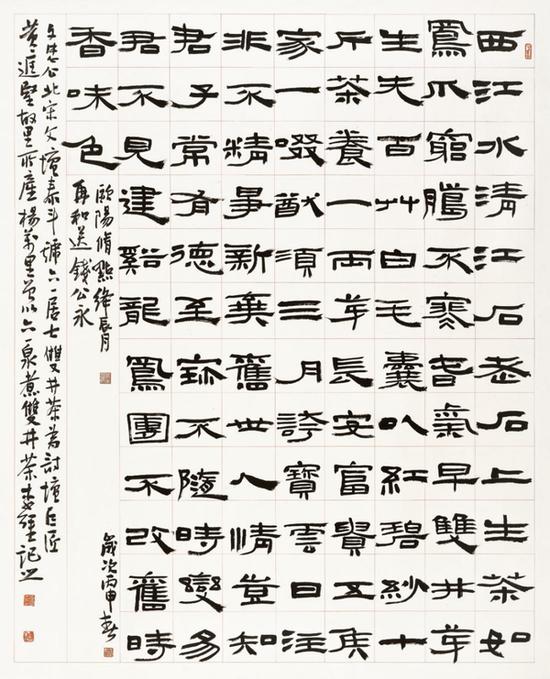 西江水清江石老石上生茶如
鳳爪窮臘不寒春氣早雙井芽
生先百艸白毛囊以紅碧紗十
斤茶養一兩芽長安富貴五侯
家一啜猷須三月誇寶雲日注
非不精爭新棄舊世人情豈知
君子常有德至寶不隨時變易
君不見建谿龍鳳團不改舊時
香味色
歐陽脩
再和送錢公永
歲次丙申春
文忠公北宋文壇泰斗號六一居士雙井茶為詩壇巨匠
黃庭堅故里所產楊萬里曾以六一泉煮雙井茶記之